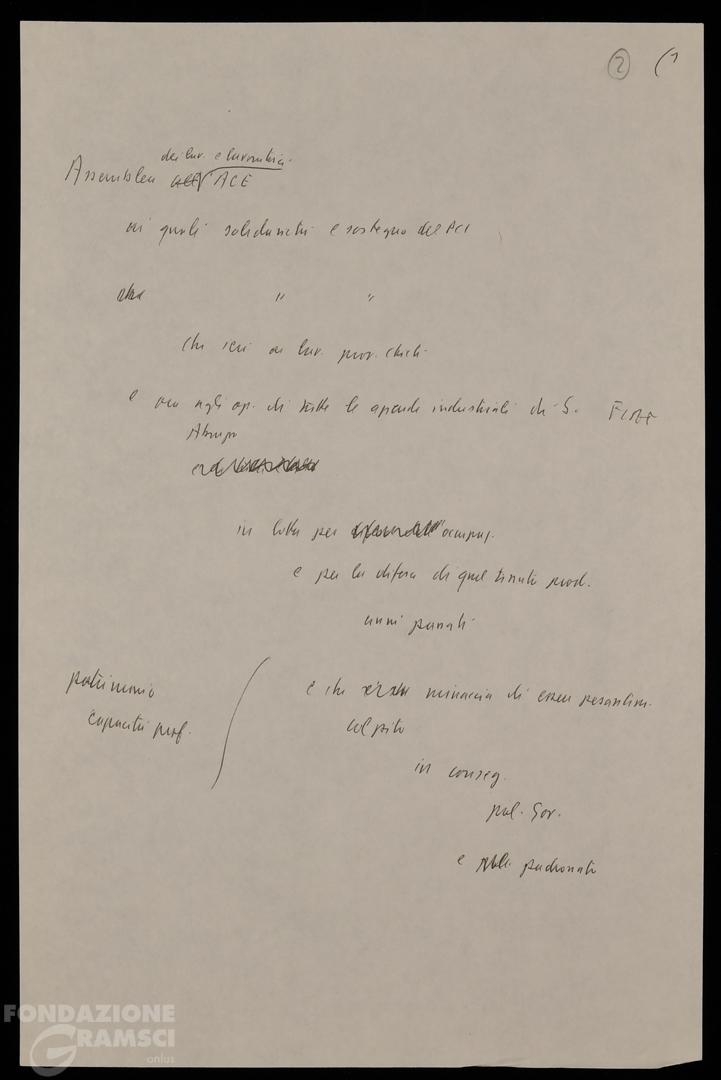 2 (1
dei lav. e lavoratrici.
Assemblea ACE
ai quali solidarietà e sostegno del PCI
" "
che ieri ai lav. prov. Chieti
e ora agli op. di tutte le aziende industriali di S.
Abruzzo
in lotta per occupaz.
e per la difesa di quel tessuto prod.
anni passati
patrimonio
capacità prof.
e che minaccia di essere pesantem.
colpito
in conseg.
pol. Gov.
e padronato
FONDAZIONE
GRAMSCI
onlus